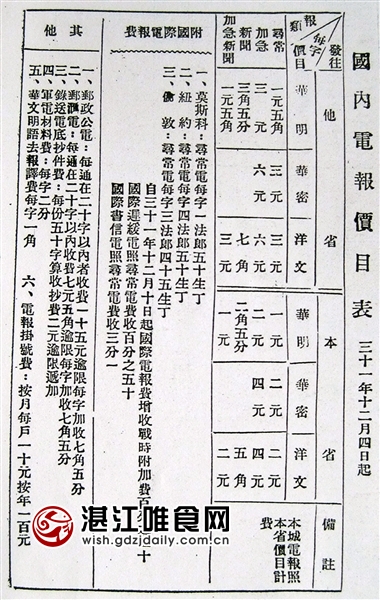 國內電報價目表 三十一年十二月四日起
發往 他省 本省 備註
報類 每字價目 華明 華密 洋文 華明 華密 洋文 本城電報照本省價目計費
尋常 一元五角 三元 三元 一元 二元 二元
加急 三元 六元 六元 二元 四元 四元
新聞 三角五分 七角 二角五分 五角
加急新聞 一元五角 三元 一元 二元
附國際電報費
一、莫斯科：尋常電每字一法郎五十生丁
二、紐約：尋常電每字四法郎五十生丁
三、倫敦：尋常電每字三法郎四十五生丁
自三十一年十二月十日起國際電報費增收戰時附加費百 十
國際遲緩電照尋常電費收百分之五十
國際書信電照尋常電費收三分一
其他
一、郵政公電：每通在二十字以內者收費一十五元逾限每字加收七角五分
二、郵轉電：每通在二十字以內收費七元五角逾限每字加收七角五分
三、錄送電底抄件費：每份五十字算收抄費二元逾限遞加
四、軍電材料費：每字二分
五、華文明語去報譯費每字一角 六、電報掛號費：按月每戶一十元按年一百元
湛江唯食网
wish.gdzjdaily.com.cn